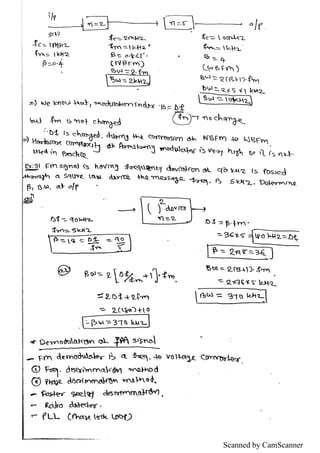 i/p
n=2
n=5
o/p
fc=1MHz
fm=1kHz
β=0.4
fc=2MHz
fm=1kHz
(NBFM)
BW=2.fm
BW=2kHz
fc=10MHz
fm=1kHz
β=4
(WBFM)
BW=2(β+1).fm
BW=2×5×1 kHz
BW=10kHz
=) We know that, modulation index 'β=Df
fm → no change.
but fm is not changed
∴Df is changed, during the conversion of NBFM to WBFM.
=) Hardware complexity of Armstrong modulator is very high so it is not
used in Practice
Ex:31 FM signal is having frequency deviation of 90 kHz is passed
through a square law device the message freq. is 5 kHz. Determine
β, B.W. at o/p
sol)
( )² device
n=2
Df=90kHz
fm=5kHz
β=18=Df/fm=90/5
Df=β.fm.
=36×5=180 kHz=Df
β=2×18=36
BW=2[Df/fm+1].fm.
=2Df+2fm
=2(180)+10
∴BW=370kHz
BW=2(β+1).fm
BW=370 kHz
* Demodulation of FM signal
- FM demodulator is a freq. to voltage Converter.
① Freq. discrimination method
② Phase discrimination method.
- Foster seely discrimination.
- Ratio detector.
- PLL (Phase lock Loop)
Scanned by CamScanner